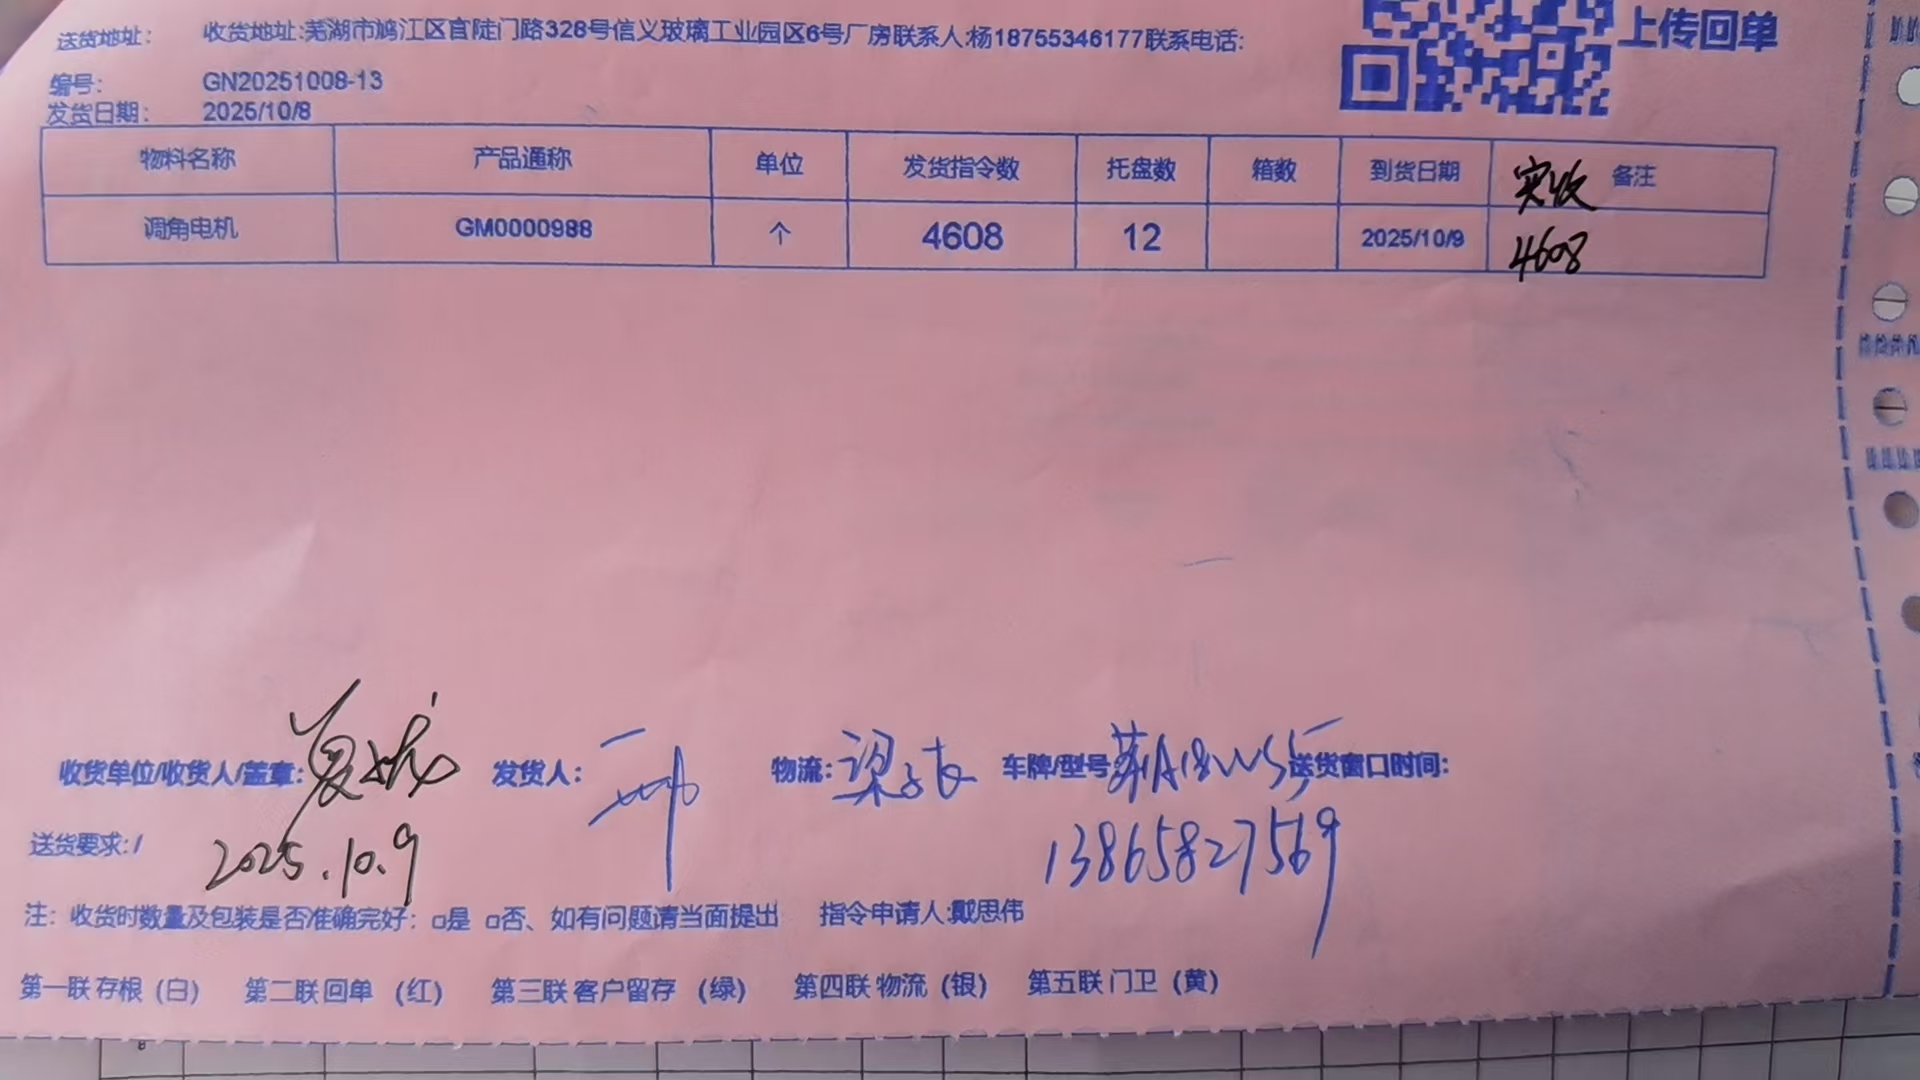 送货地址: 收货地址:芜湖市鸠江区官陡门路328号信义玻璃工业园区6号厂房联系人:杨18755346177联系电话:
上传回单
编号: GN20251008-13
发货日期: 2025/10/8
物料名称 产品通称 单位 发货指令数 托盘数 箱数 到货日期 实收 备注
调角电机 GM0000988 个 4608 12 2025/10/9 4608
收货单位/收货人/盖章: 发货人: 物流: 梁 车牌/型号 送货窗口时间:
送货要求:/ 2025.10.9 13865827569
注: 收货时数量及包装是否准确完好: □是 □否、如有问题请当面提出 指令申请人:戴思伟
第一联 存根 (白) 第二联 回单 (红) 第三联 客户留存 (绿) 第四联 物流 (银) 第五联 门卫 (黄)